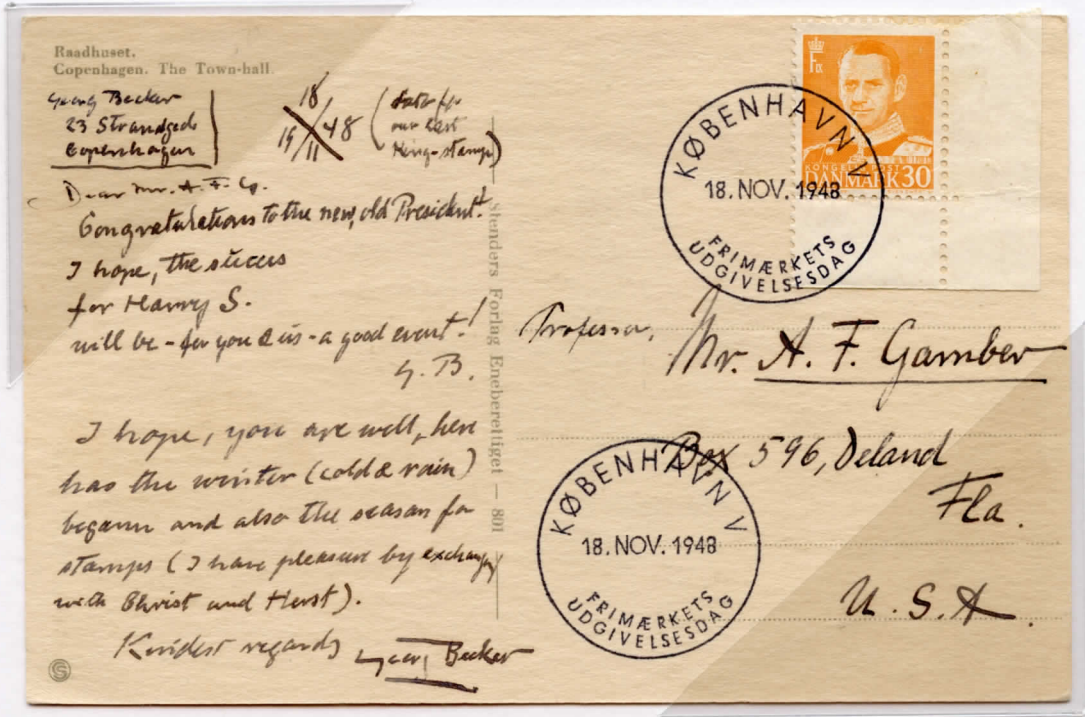 Raadhuset.
Copenhagen. The Town-hall.
Georg Becker
23 Strandgade
Copenhagen
18
19/11 48
our last
King-stamp)
Dear Mr. A. F. G.
Congratulations to the new, old President!
I hope, the succes
for Harry S.
will be - for you & us - a good event!
G. B.
I hope, you are well, here
has the winter (cold & rain)
begann and also the season for
stamps (I have pleasure by exchanging
with Christ and Herst).
Kindest regards Georg Becker
Stenders Forlag Eneberettiget — 801
KONGELIG POST
DANMARK 30
KØBENHAVN V
18. NOV. 1948
FRIMÆRKETS
UDGIVELSESDAG
Professor,
Mr. A. F. Gamber
Box 596, Deland
Fla.
U. S. A.
KØBENHAVN V
18. NOV. 1948
FRIMÆRKETS
UDGIVELSESDAG
S